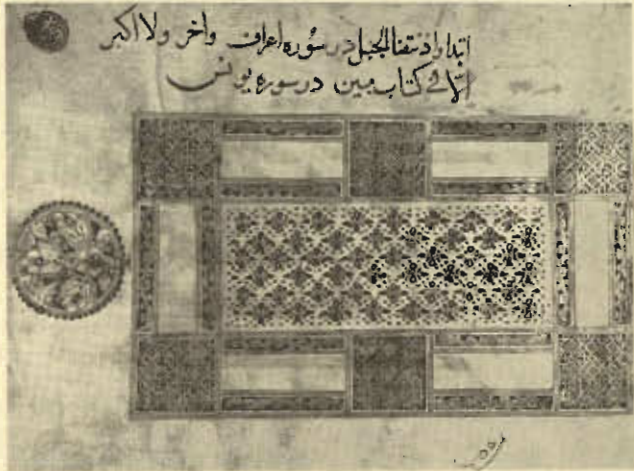 ابتدا واذ نتقنا الجبل در سوره اعراف وآخر ولا اکبر
الا فی کتاب مبین در سوره یونس